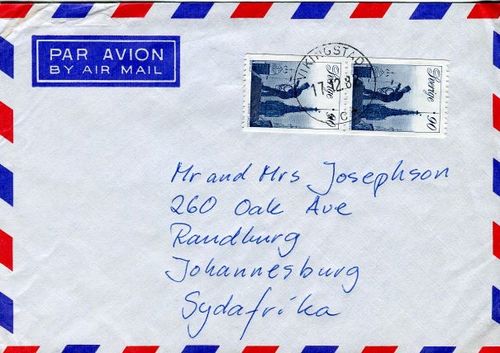 PAR AVION
BY AIR MAIL
VIKINGSTAD
Sverige
90
Sverige
90
Mr and Mrs Josephson
260 Oak Ave
Randburg
Johannesburg
Sydafrika